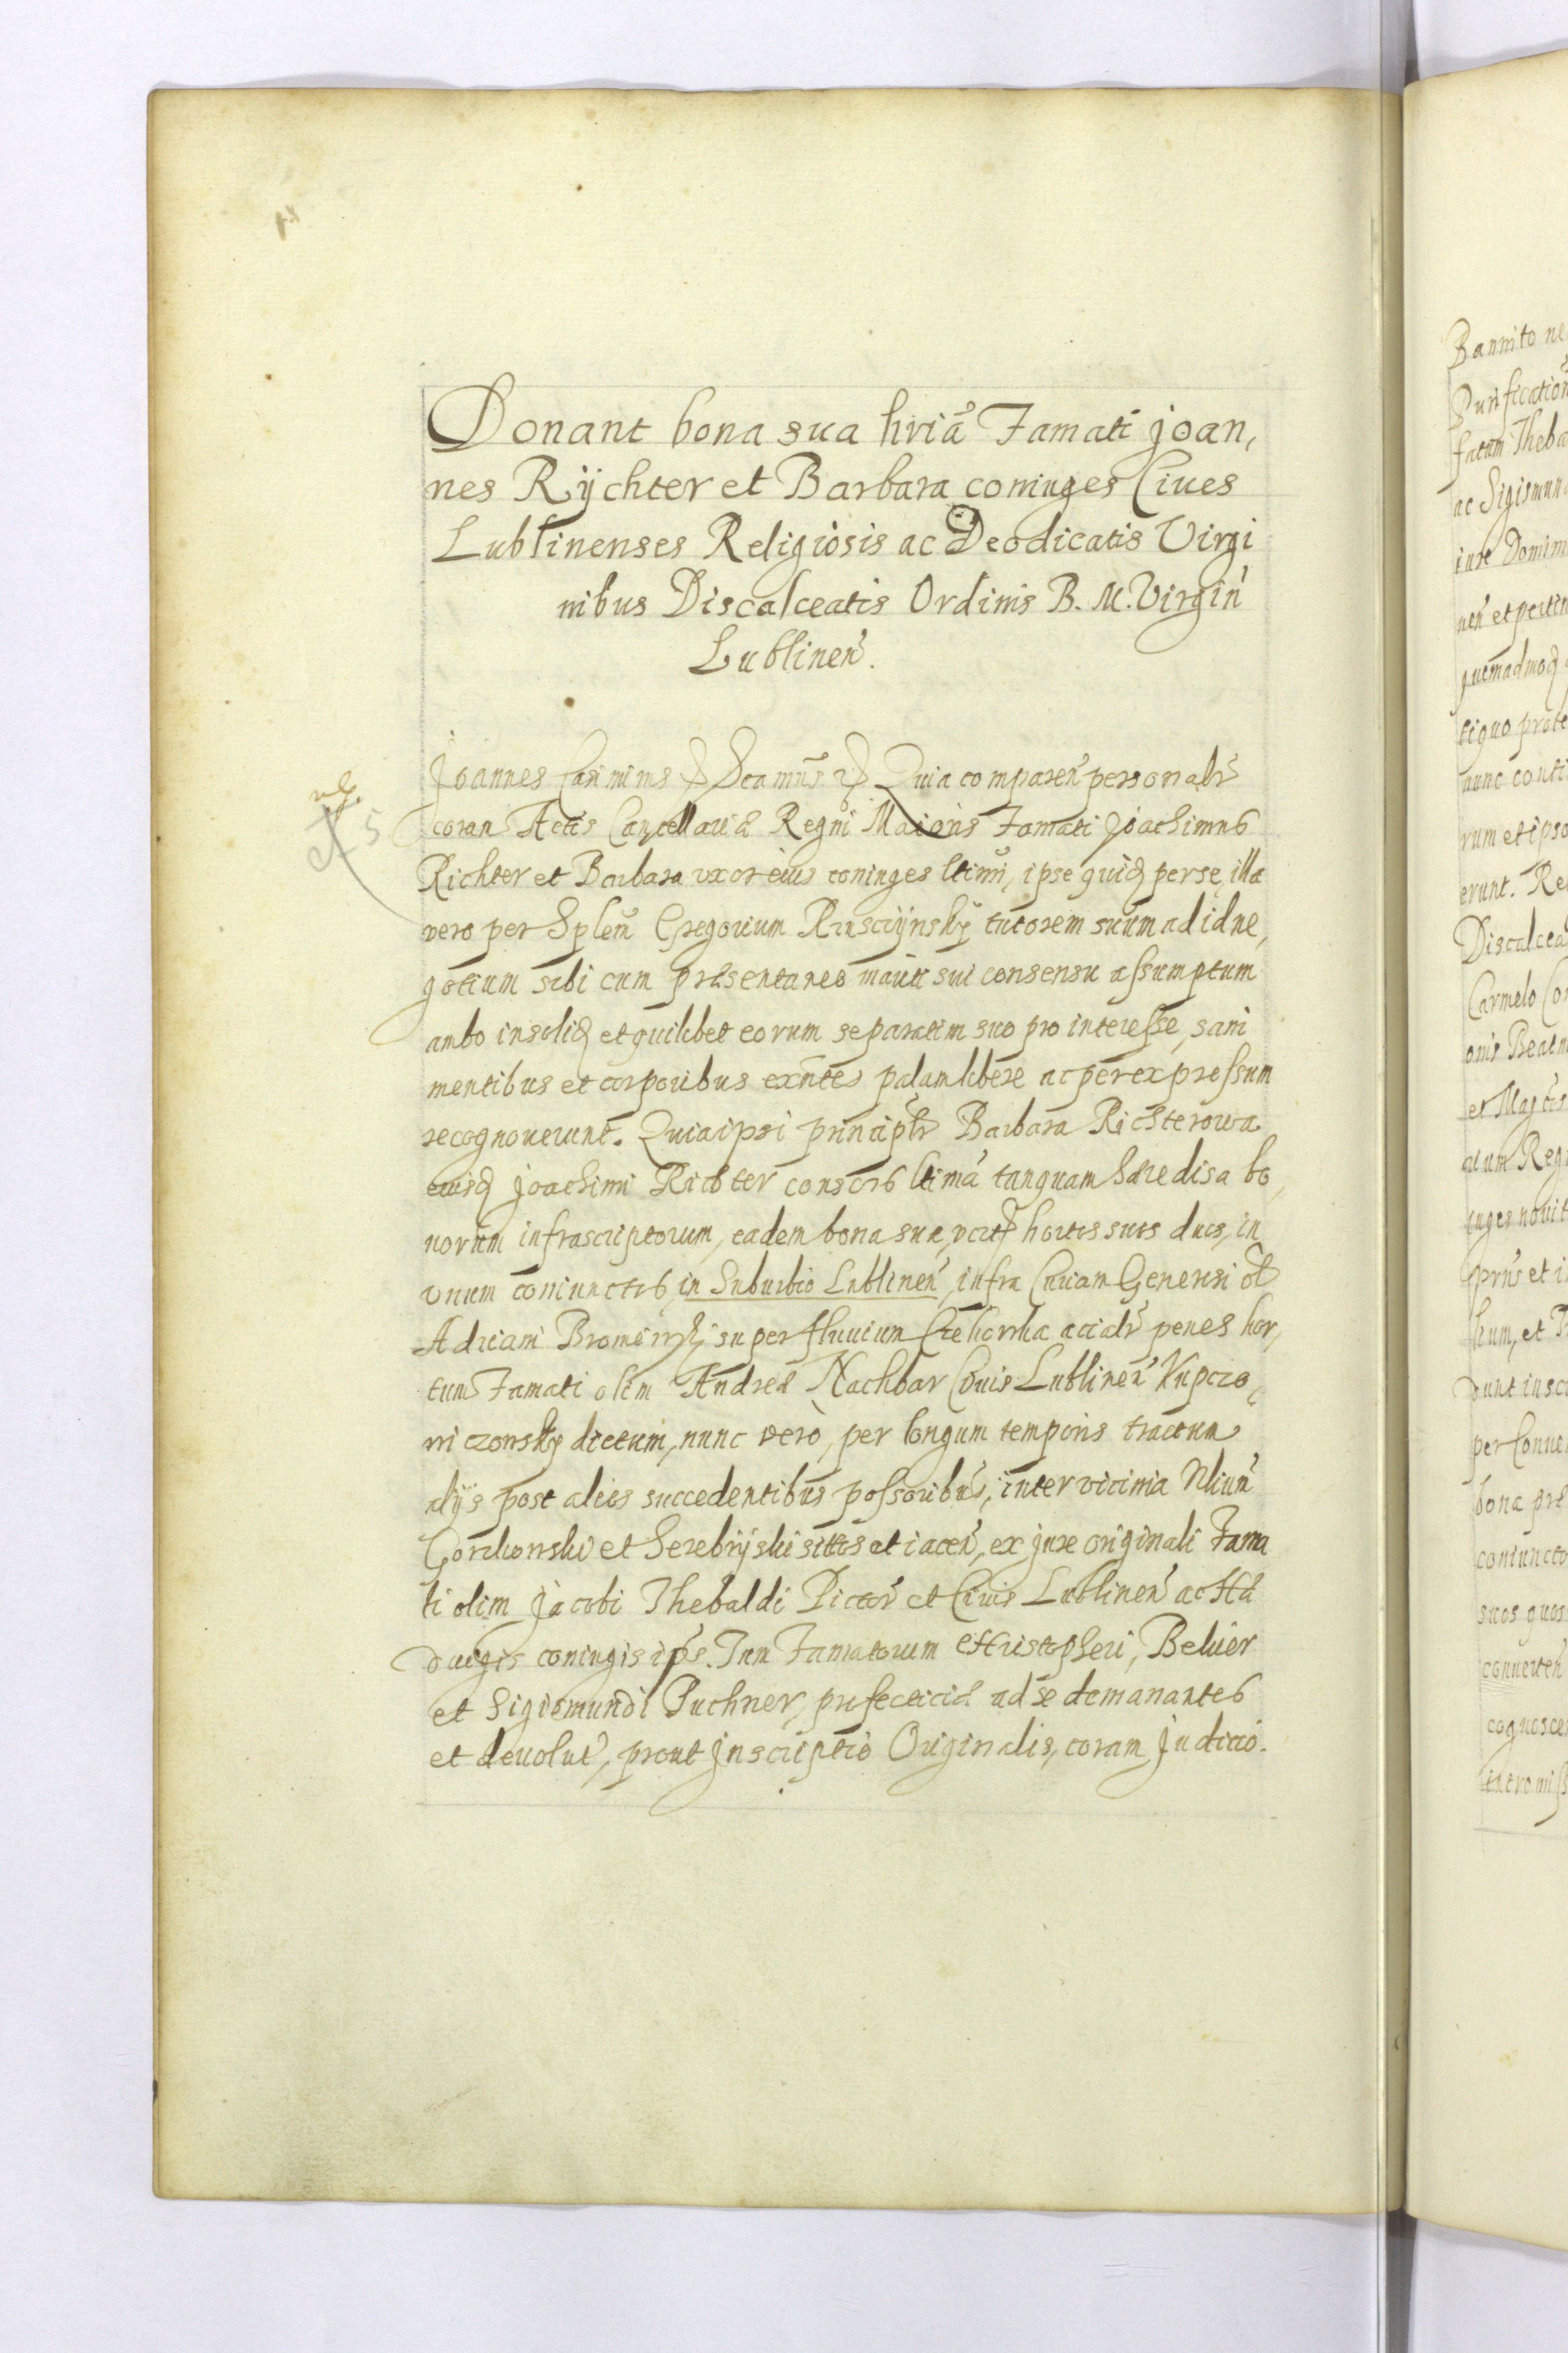 Donant bona sua hriã Famati Joan,
nes Rÿchter et Barbara coniuges Ciues
Lublinenses Religiosis ac Deodicatis Virgi
nibus Discalceatis Ordinis B. M. Virgin
Lublinen.
Joannes Casimirus Quia comparen personalr
coram Actis Cancellariæ Regni Maioris Famati Joachimus
Richter et Barbara uxor eius coniuges ltimi, ipse quidq per se, illa
vero per Gregorium tutorem suum ad id ne,
gotium sibi cum præsentaneo mariti sui consensu assumptum
ambo in solidq et quilibet eorum separatim suo pro interesse, sani
mentibus et corporibus exntes palam libere ac per expressum
recognouerunt. Quia ipsi principlr Barbara Richterowa
eiusdq Joachimi Richter consors ltima tanquam hæredissa bo,
norum infrascriptorum, eadem bona sua, hortos suos duos, in
vnum coniunctos, in Suburbio Lublinen, infra Curiam Generosi ol
Adriani super fluuium penes hor,
tum Famati olim Andreæ Nachbar Ciuis Lublinen Kupczo,
niczonsky dictum, nunc verò, per longum temporis tractum
alÿs post alios succedentibus possoribus, inter vicinia
et Serebrÿski sittos et iacen, ex jure originali Fama
ti olim Jacobi Thebaldi Pictor et Ciuis Lublinen ac Hæ
duigis coniugis ips. Tum Famatorum Christopheri, Beluer
et Sigismundi Puchner, ad se demanantes
et deuolut, prout Jnscriptio Originalis, coram Judicio.
Bannito ne
Purification
fatum Theba
ac Sigismun
iure Domini
nen et pertin
quemadmodq
tiquo
nunc conti
rum et ipso
erunt. Re
Discalcea
Carmelo Co
onis Beatæ
et
Reg
iuges nouit
et i
et
dunt insc
per Conue
bona præ
coniuncto
suos quos
conuerten
cognosce
intromiss